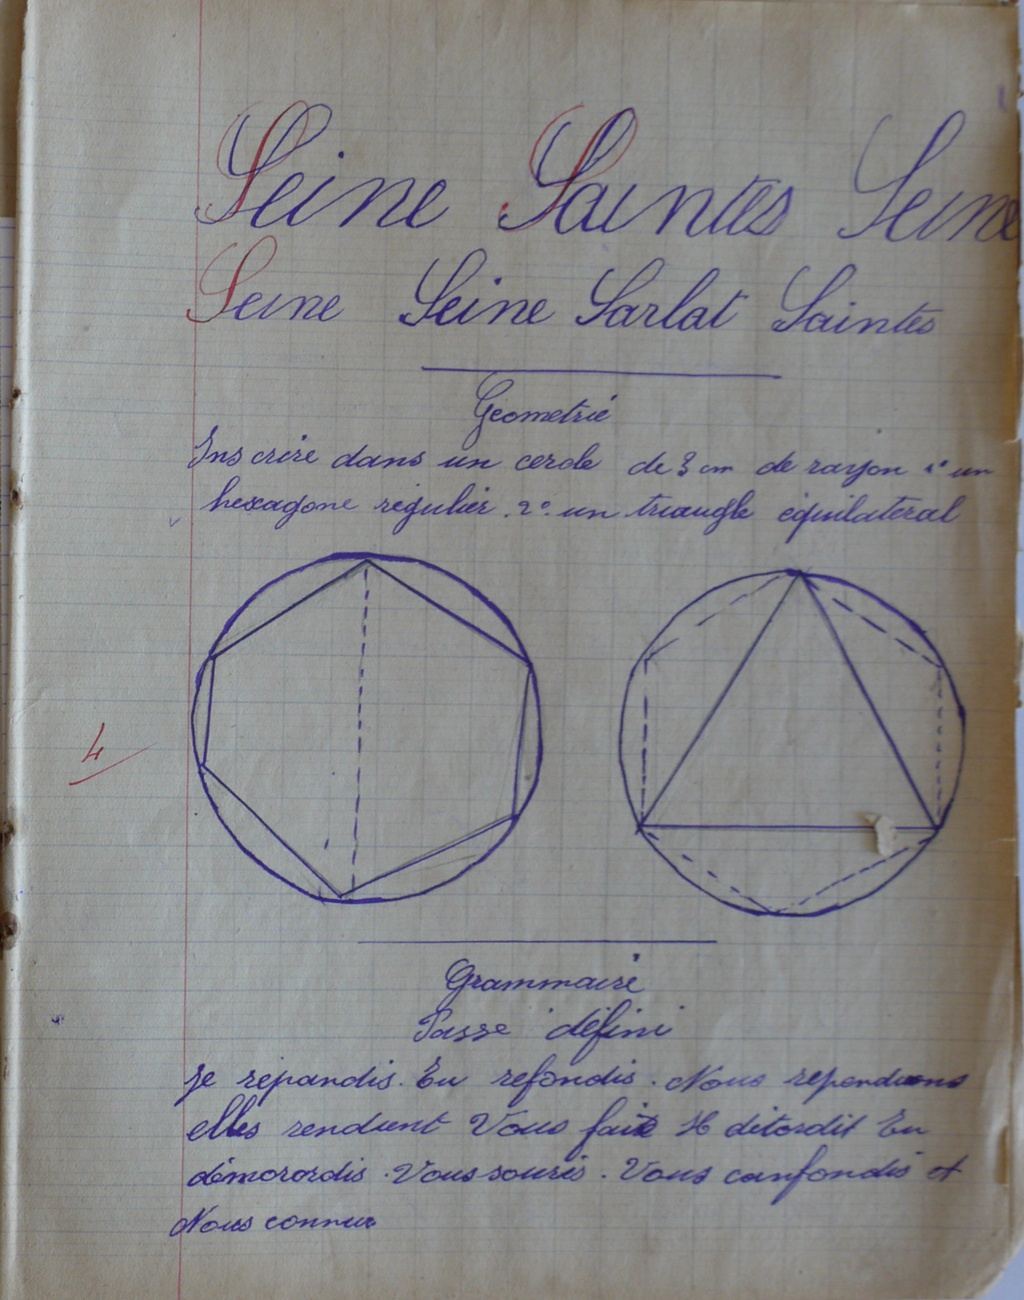 Seine Saintes Seine
Seine Seine Sarlat Saintes
Géometrie
Inscrire dans un cercle de 3 cm de rayon 1° un
hexagone régulier . 2° un triangle équilateral
4
Grammaire
Passé défini
Je répandis. Tu refondis. Nous
elles Vous Il détordit Tu
démorordis. Vous souris. Vous confondis et
Nous